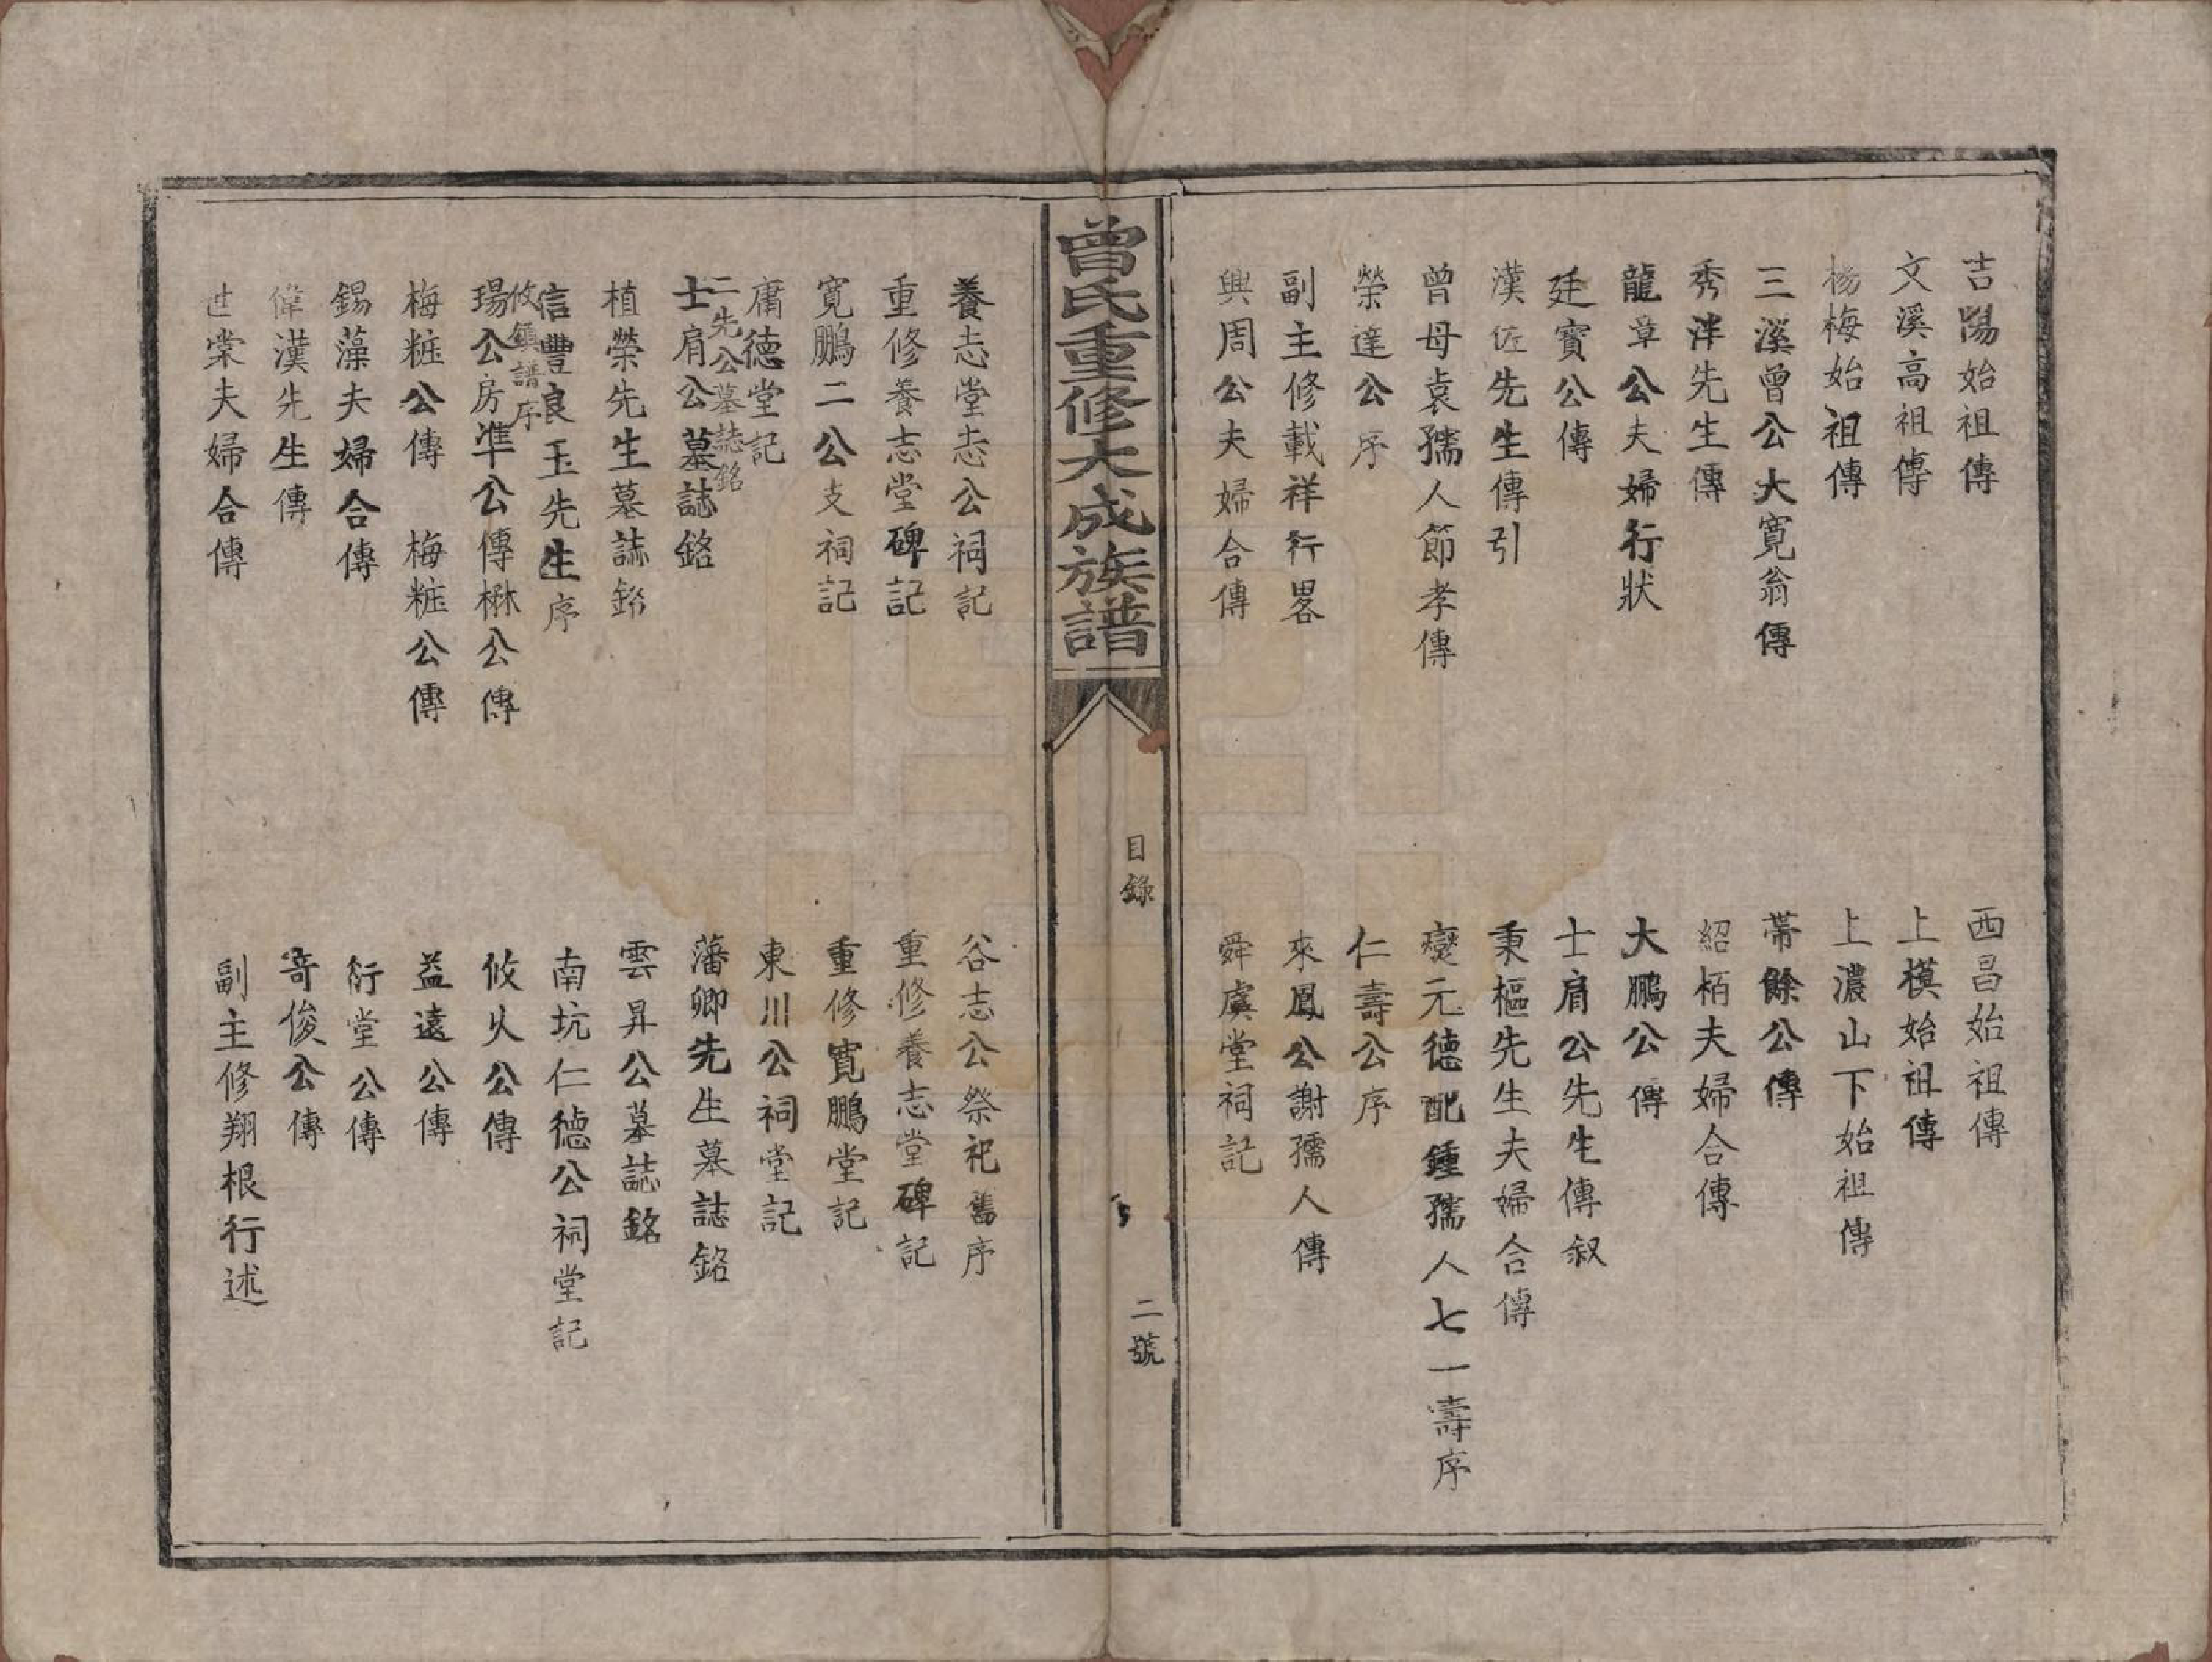 吉陽始祖傳
西昌始祖傳
文溪高祖傳
上模始祖傳
楊梅始祖傳
上濃山下始祖傳
三溪曾公大寬翁傳
帶餘公傳
秀泮先生傳
紹栢夫婦合傳
龍章公夫婦行狀
大鵬公傳
廷寶公傳
士肩公先生傳叙
漢佐先生傳引
秉樞先生夫婦合傳
曾母袁孺人節孝傳
燮元德配鍾孺人七一壽序
榮達公序
仁壽公序
副主修載祥行畧
來鳳公謝孺人傳
興周公夫婦合傳
舜虞堂祠記
曾氏重修大成族譜
目錄
二號
養志堂志公祠記
谷志公祭祀舊序
重修養志堂碑記
重修養志堂碑記
寛鵬二公支祠記
重修寛鵬堂記
庸德堂記
東川公祠堂記
二先公墓誌銘
士肩公墓誌銘
藩卿先生墓誌銘
植榮先生墓誌銘
雲昇公墓誌銘
信豐良玉先生序
南坑仁德公祠堂記
攸鎮譜序
瑒公房準公傳楙公傳
攸火公傳
梅粧公傳 梅粧公傳
益遠公傳
錫藻夫婦合傳
衍堂公傳
偉漢先生傳
竒俊公傳
世棠夫婦合傳
副主修翔根行述